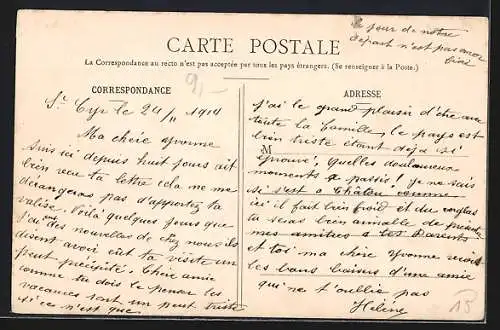 le jour de notre
départ n'est pas encore
fixé
CARTE POSTALE
La Correspondance au recto n'est pas acceptée par tous les pays étrangers. (Se renseigner à la Poste.)
9,-
CORRESPONDANCE
St Cyr le 24/11 1914
Ma chère Yvonne
Suis ici depuis huit jours ait
bien reçu ta lettre cela ne me
dérangeras pas d'apportez ta
valise. Voilà quelques jours que
J'ai eut des nouvelles de chez nous ils
disent avoir eut ta visite un
peut précipité. Chère amie
comme tu dois le penser les
vacances sont un peut triste
si ce n'est que
ADRESSE
j'ai le grand plaisir d'être avec
toute la famille, le pays est
bien triste étant déjà si
M
éprouvé, quelles douloureux
moments à passés! je ne sais
si c'est à Châlou comme
ici il fait bien froid et du
tu seras bien aimable de
mes amitiés à tes Parents
et toi ma chère Yvonne reçois
les bons baisers d'une amie
qui ne t'oublie pas
Hélène
15